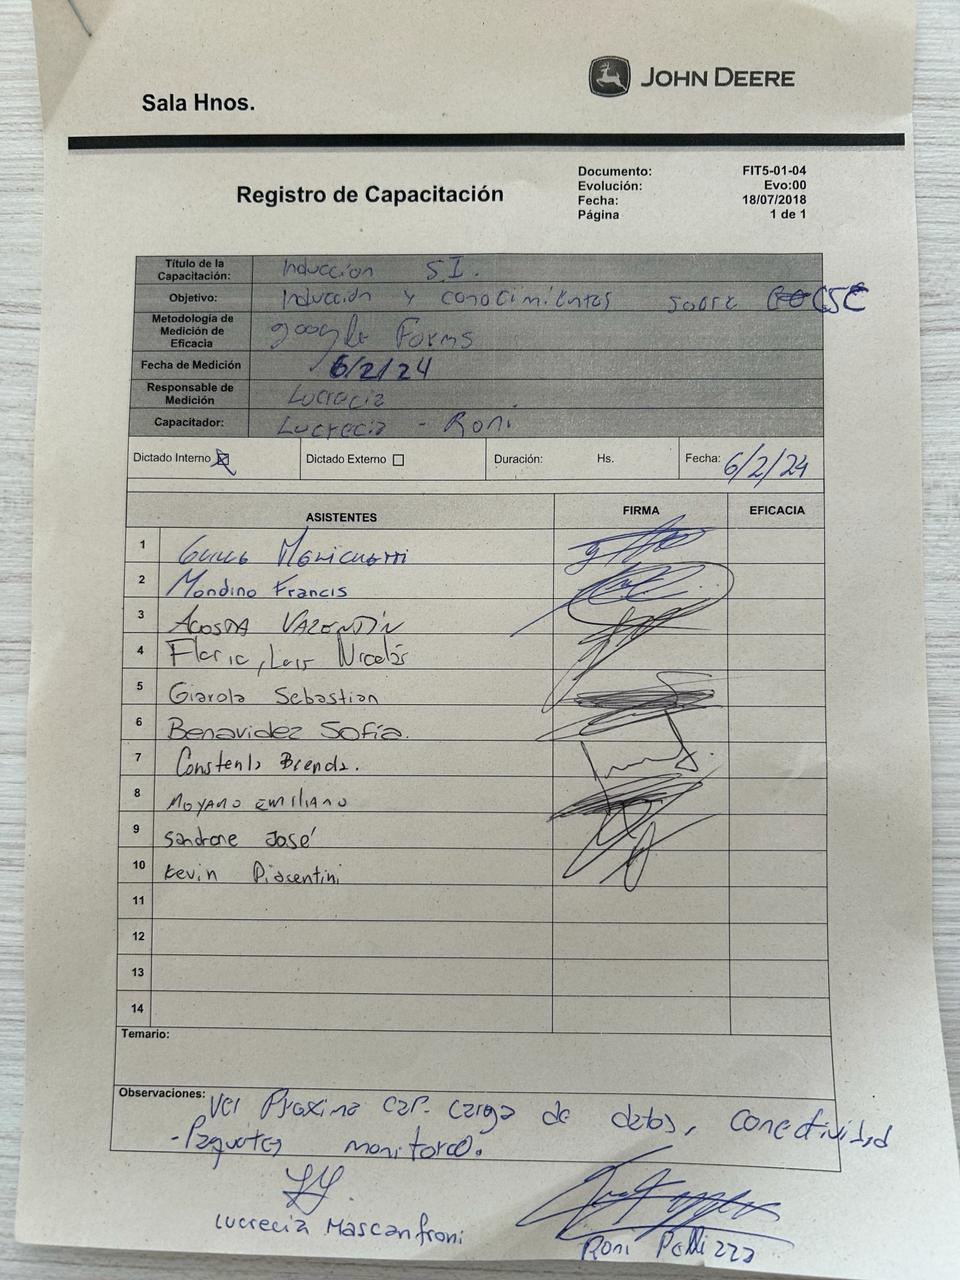 JOHN DEERE
Sala Hnos.
Registro de Capacitación
Documento: FIT5-01-04
Evolución: Evo:00
Fecha: 18/07/2018
Página 1 de 1
Título de la Capacitación: Inducción S.I.
Objetivo: Inducción y conocimientos sobre CSC
Metodología de Medición de Eficacia google Forms
Fecha de Medición 6/2/24
Responsable de Medición: Lucrecia
Capacitador: Lucrecia - Roni
Dictado Interno Dictado Externo Duración: Hs. Fecha: 6/2/24
ASISTENTES FIRMA EFICACIA
1 Menichetti
2 Mondino Francis
3 Acosta VALENTÍN
4 Luis Nicolás
5 Giarola Sebastian
6 Benavidez Sofía.
7 Constenla Brenda.
8 MOYANO EMILIANO
9 Sandrone José
10 Kevin Piacentini
11
12
13
14
Temario:
Observaciones: Ver Proxima cap. carga de datos, conectividad
- Paquetes monitoreo.
Lucrecia Mascanfroni
Roni Pellizza